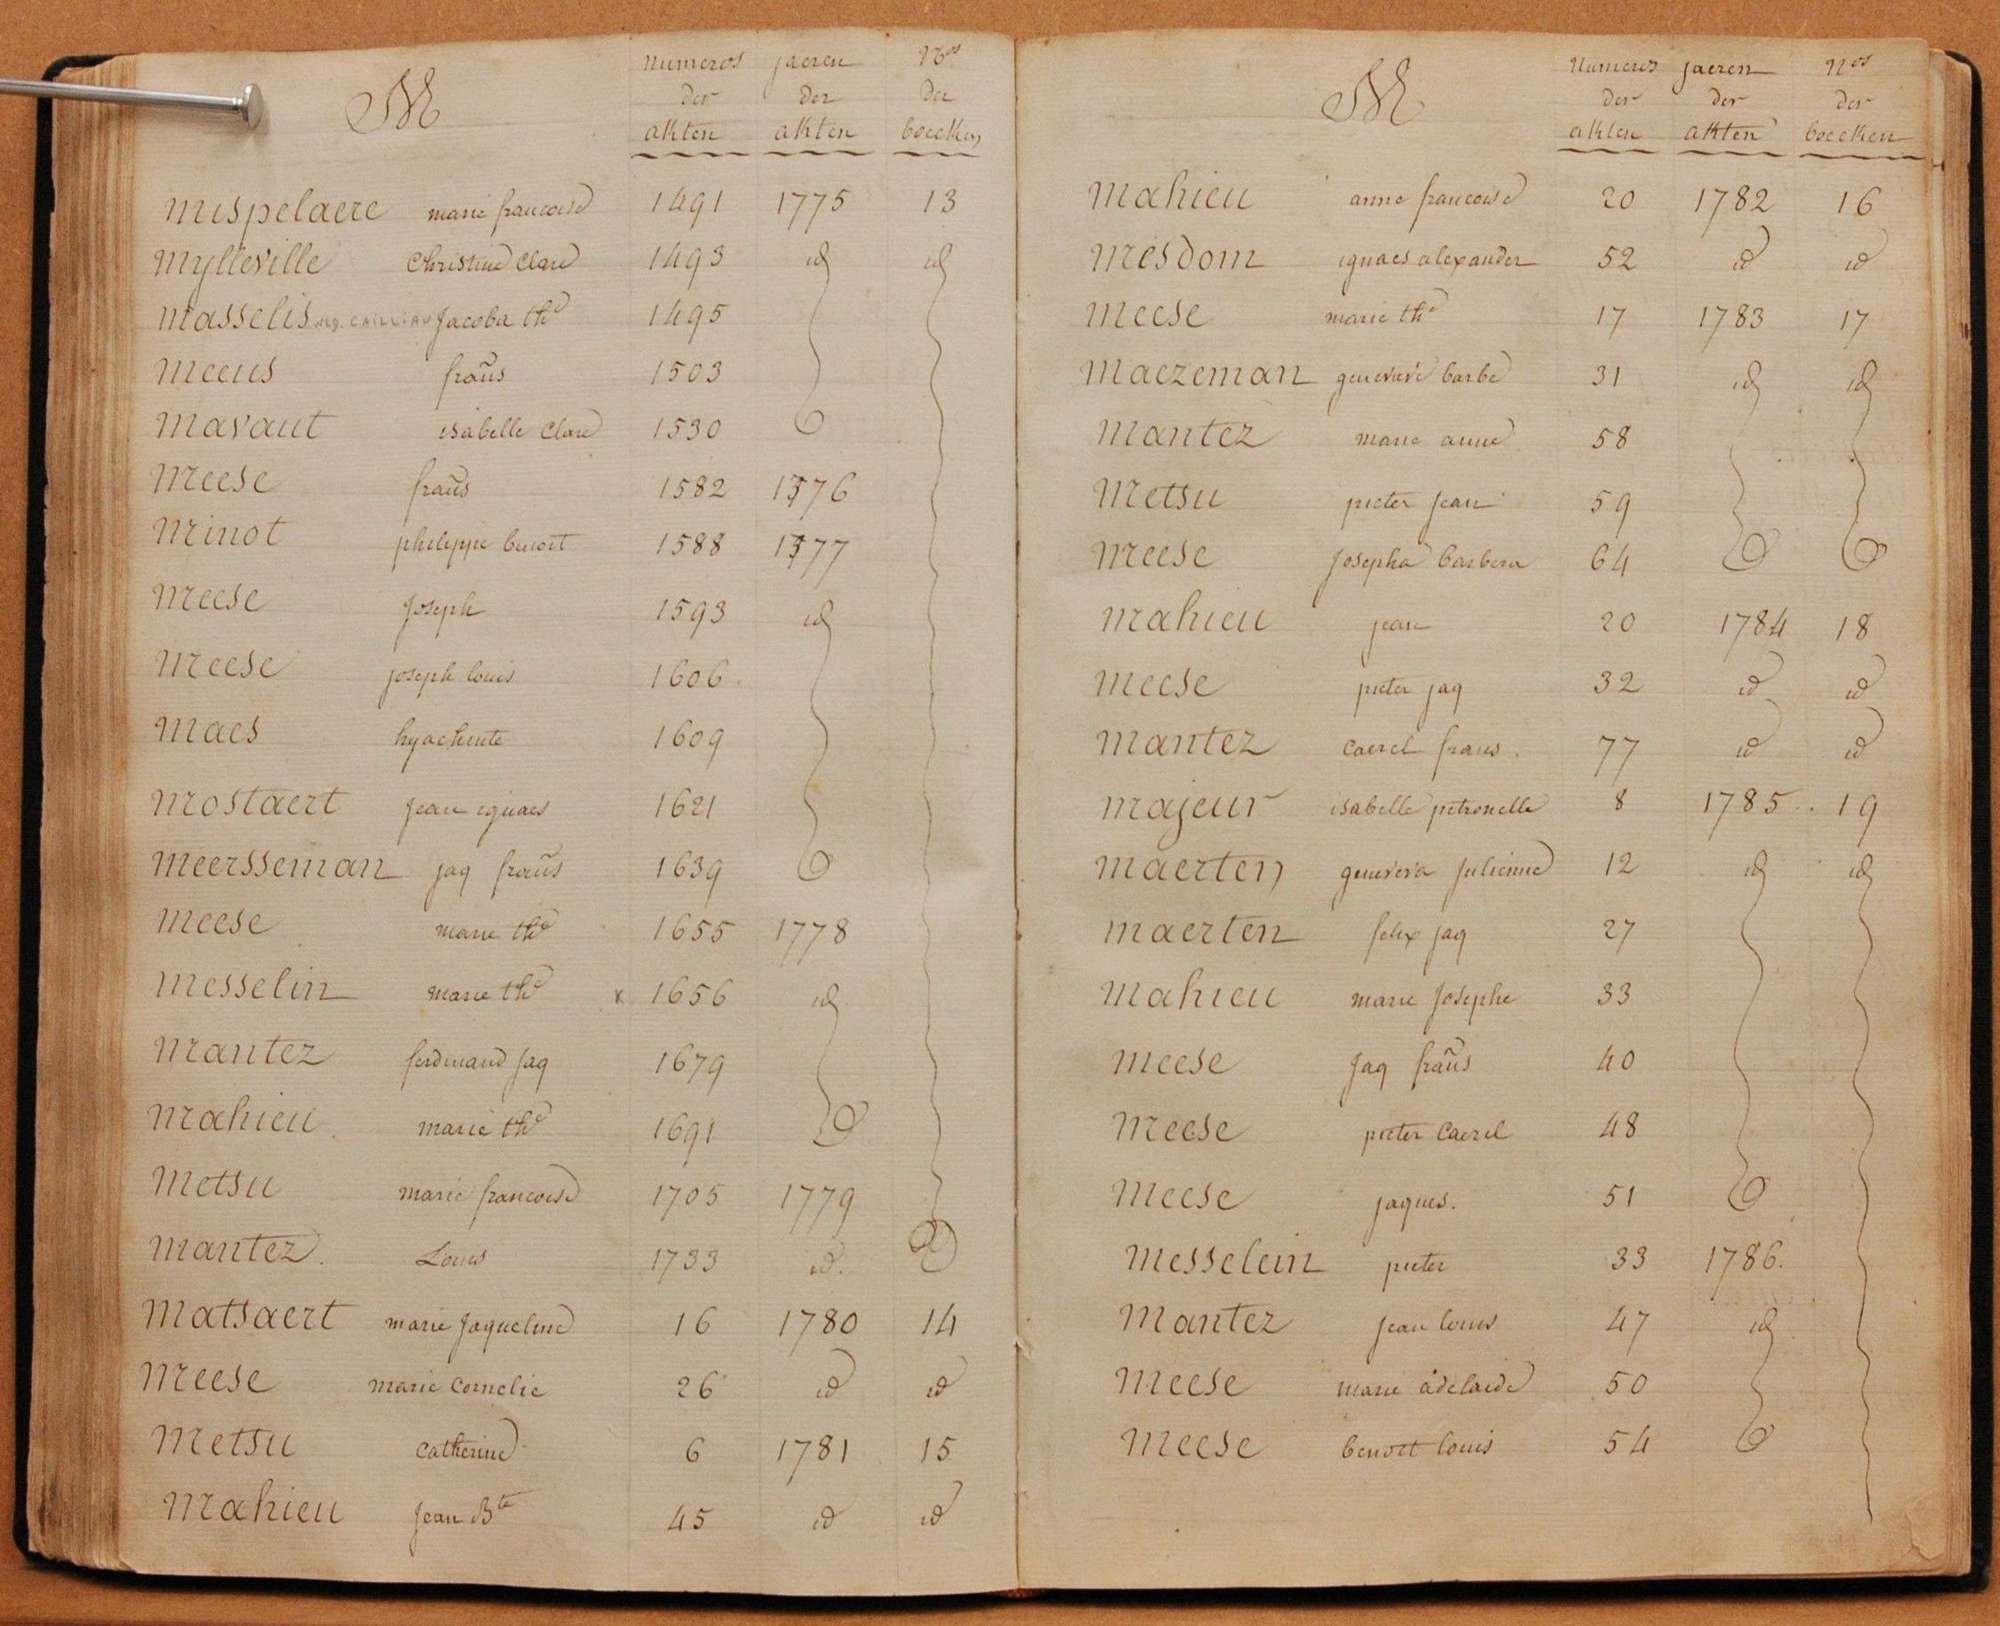 M numeros jaeren Nos
der der der
akten akten boecken
mispelaere marie francoise 1491 1775 13
mylleville Christine Clare 1493 id id
masselis Jacoba the 1495
meeus frans̃ 1503
mavaut isabelle Clare 1530
meese frans̃ 1582 1776
minot philippe benoit 1588 1777
meese Joseph 1593 id
meese joseph louis 1606
maes hyachinte 1609
mostaert Jean ignaes 1621
meersseman jaq frans̃ 1639
meese marie the 1655 1778
messelin marie the x 1656 id
mantez ferdinand Jaq 1679
mahieu marie the 1691
metsu marie francoise 1705 1779
mantez Louis 1733 id
matsaert marie Jaqueline 16 1780 14
meese marie Cornelie 26 id id
metsu Catherine 6 1781 15
mahieu Jean Bte 45 id id
M Numeros jaeren Nos
der der der
akten akten boecken
mahieu anne francoise 20 1782 16
mesdom ignaes alexander 52 id id
meese marie the 17 1783 17
maezeman genevieve barbe 31 id id
mantez marie anne 58
metsu pieter Jean 59
meese Josepha barbera 64
mahieu jean 20 1784 18
meese pieter jaq 32 id id
mantez Caerel frans. 77 id id
majeur isabelle petronelle 8 1785 19
maerten geneveva Julienne 12 id id
maerten felix jaq 27
mahieu marie Josephe 33
meese Jaq frans̃ 40
meese pieter Caerel 48
meese jaques. 51
messelein pieter 33 1786.
mantez Jean louis 47 id
meese marie adelaide 50
meese benoit louis 54